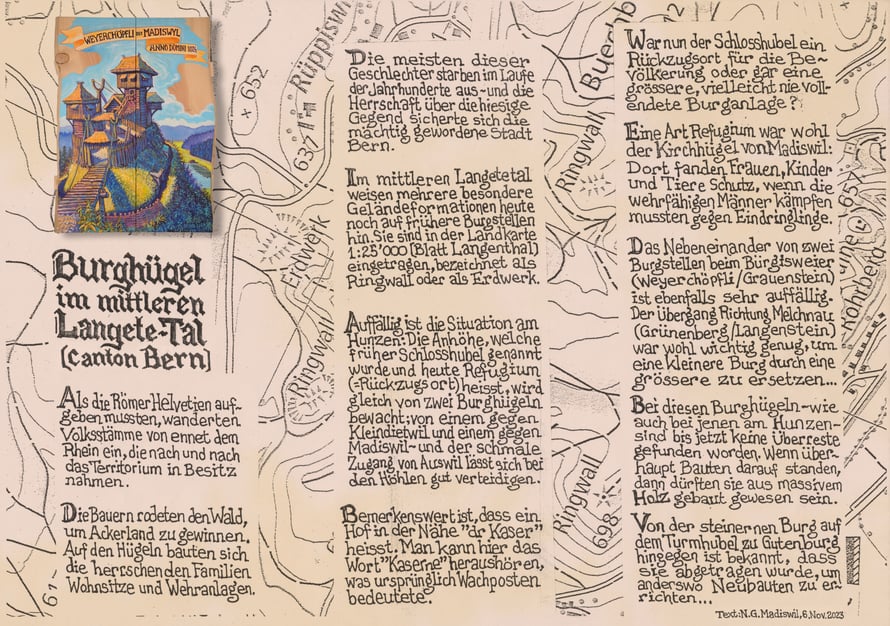 WEYERCHÖPFLI BEI MADISWYL
ANNO DOMINI
Burghügel
im mittleren
Langete-Tal
(Canton Bern)
Als die Römer Helvetien auf-
geben mussten, wanderten
Volksstämme von ennet dem
Rhein ein, die nach und nach
das Territorium in Besitz
nahmen.
Die Bauern rodeten den Wald,
um Ackerland zu gewinnen.
Auf den Hügeln bauten sich
die herrschenden Familien
Wohnsitze und Wehranlagen.
Die meisten dieser
Geschlechter starben im Laufe
der Jahrhunderte aus - und die
Herrschaft über die hiesige
Gegend sicherte sich die
mächtig gewordene Stadt
Bern.
Im mittleren Langetetal
weisen mehrere besondere
Geländeformationen heute
noch auf frühere Burgstellen
hin. Sie sind in der Landkarte
1:25'000 (Blatt Langenthal)
eingetragen, bezeichnet als
Ringwall oder als Erdwerk.
Auffällig ist die Situation am
Hunzen: Die Anhöhe, welche
früher Schlosshubel genannt
wurde und heute Refugium
(=Rückzugsort) heisst, wird
gleich von zwei Burghügeln
bewacht; von einem gegen
Kleindietwil und einem gegen
Madiswil - und der schmale
Zugang von Auswil lässt sich bei
den Höhlen gut verteidigen.
Bemerkenswert ist, dass ein
Hof in der Nähe "dr Kaser"
heisst. Man kann hier das
Wort "Kaserne" heraushören,
was ursprünglich Wachposten
bedeutete.
War nun der Schlosshubel ein
Rückzugsort für die Be-
völkerung oder gar eine
grössere, vielleicht nie voll-
endete Burganlage?
Eine Art Refugium war wohl
der Kirchhügel von Madiswil:
Dort fanden Frauen, Kinder
und Tiere Schutz, wenn die
wehrfähigen Männer kämpfen
mussten gegen Eindringlinge.
Das Nebeneinander von zwei
Burgstellen beim Bürgisweier
(Weyerchöpfli/Grauenstein)
ist ebenfalls sehr auffällig.
Der Übergang Richtung Melchnau
(Grünenberg/Langenstein)
war wohl wichtig genug, um
eine kleinere Burg durch eine
grössere zu ersetzen...
Bei diesen Burghügeln - wie
auch bei jenen am Hunzen-
sind bis jetzt keine Überreste
gefunden worden. Wenn über-
haupt Bauten darauf standen,
dann dürften sie aus massivem
Holz gebaut gewesen sein.
Von der steinernen Burg auf
dem Turmhubel zu Gutenburg
hingegen ist bekannt, dass
sie abgetragen wurde, um
anderswo Neubauten zu er-
richten...
Text: N.G. Madiswil, 6. Nov. 2023
652
Rüppiswil
637
Erdwerk
Ringwall
Buechb
Ringwall
Ringwall
698
657
Rohrberg
61